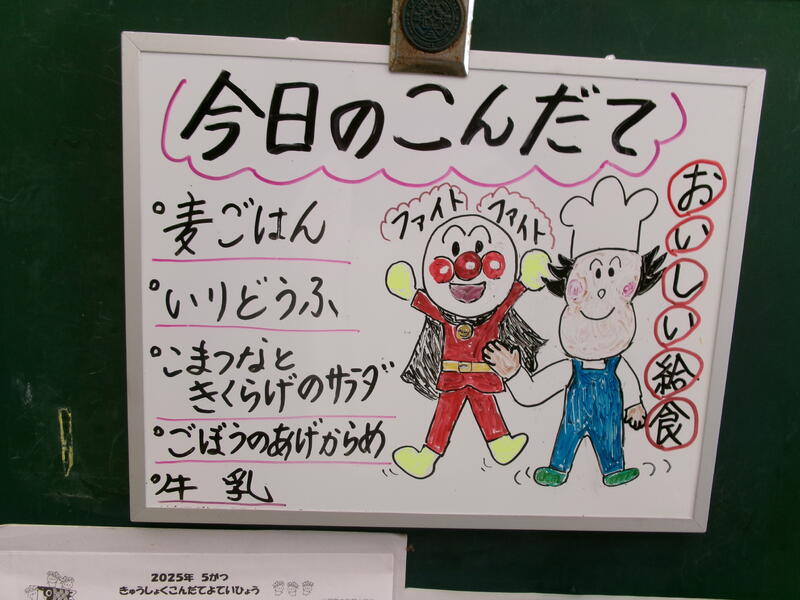 今日のこんだて
。麦ごはん
。いりどうふ
。こまつなと
きくらげのサラダ
。ごぼうのあげからめ
。牛乳
ファイト
ファイト
おいしい給食
2025年 5がつ
きゅうしょくこんだてよていひょう